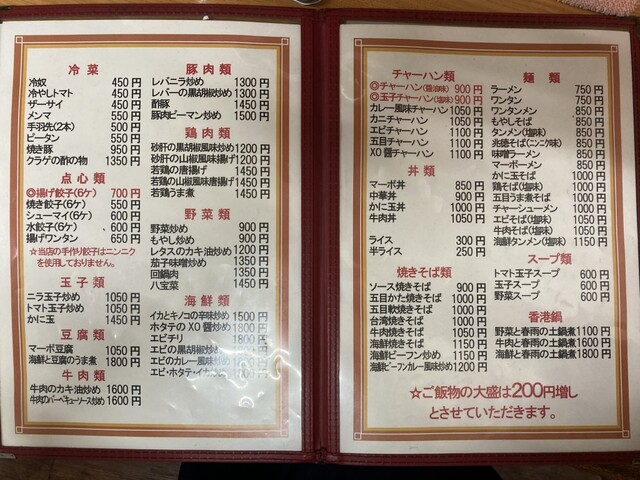 冷菜
冷奴 450円
冷やしトマト 450円
ザーサイ 450円
メンマ 550円
手羽先(2本) 500円
ピータン 550円
焼き豚 950円
クラゲの酢の物 1350円
点心類
◎揚げ餃子(6ケ) 700円
焼き餃子(6ケ) 550円
シューマイ(6ケ) 600円
水餃子(6ケ) 600円
揚げワンタン 650円
☆当店の手作り餃子はニンニク
を使用しておりません。
玉子類
ニラ玉子炒め 1050円
トマト玉子炒め 1050円
かに玉 1450円
豆腐類
マーボ豆腐 1050円
海鮮と豆腐のうま煮 1800円
牛肉類
牛肉のカキ油炒め 1600円
牛肉のバーベキューソース炒め 1600円
豚肉類
レバニラ炒め 1300円
レバーの黒胡椒炒め 1300円
酢豚 1450円
豚肉ピーマン炒め 1500円
鶏肉類
砂肝の黒胡椒風味炒め 1200円
砂肝の山椒風味唐揚げ 1200円
若鶏の唐揚げ 1450円
若鶏の山椒風味唐揚げ 1450円
若鶏うま煮 1450円
野菜類
野菜炒め 900円
もやし炒め 900円
レタスのカキ油炒め 1200円
茄子味噌炒め 1350円
回鍋肉 1350円
八宝菜 1450円
海鮮類
イカとキノコの辛味炒め 1500円
ホタテのXO醤炒め 1800円
エビチリ 1800円
エビの黒胡椒炒め
エビのカレー風味炒め
エビ・ホタテ・イカの
チャーハン類
◎チャーハン(醤油味) 900円
◎玉子チャーハン(塩味) 900円
カレー風味チャーハン 1050円
カニチャーハン 1100円
エビチャーハン 1100円
五目チャーハン 1100円
XO醤チャーハン 1100円
丼類
マーボ丼 850円
中華丼 950円
かに玉丼 1000円
牛肉丼 1050円
ライス 300円
半ライス 250円
焼きそば類
ソース焼きそば 900円
五目かた焼きそば 1000円
五目軟焼きそば 1000円
台湾焼きそば 1000円
牛肉焼きそば 1050円
海鮮焼きそば 1150円
海鮮ビーフン炒め 1150円
海鮮ビーフンカレー風味炒め 1200円
麺類
ラーメン 750円
ワンタン 750円
ワンタンメン 850円
もやしそば 850円
タンメン(塩味) 850円
兆徳そば(ニンニク味) 850円
味噌ラーメン 850円
マーボーメン 850円
かに玉そば 1000円
鶏そば(塩味) 1000円
五目うま煮そば 1000円
チャーシューメン 1050円
エビそば(塩味) 1050円
牛肉そば(塩味) 1050円
海鮮タンメン(塩味) 1150円
スープ類
トマト玉子スープ 600円
玉子スープ 600円
野菜スープ 600円
香港鍋
野菜と春雨の土鍋煮 1100円
牛肉と春雨の土鍋煮 1600円
海鮮と春雨の土鍋煮 1800円
☆ご飯物の大盛は200円増し
とさせていただきます。